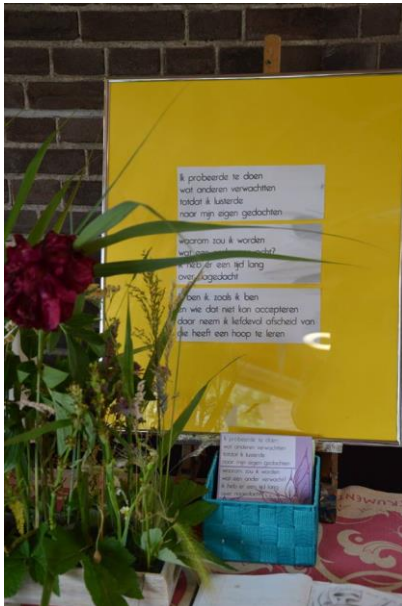 ik probeerde te doen
wat anderen verwachtten
totdat ik luisterde
naar mijn eigen gedachten
waarom zou ik worden
wat een ander verwacht?
ik heb er een tijd lang
over nagedacht
ik ben ik zoals ik ben
en wie dat niet kan accepteren
daar neem ik liefdevol afscheid van
die heeft een hoop te leren
ik probeerde te doen
wat anderen verwachtten
totdat ik luisterde
naar mijn eigen gedachten
waarom zou ik worden
wat een ander verwacht?
ik heb er een tijd lang
over nagedacht